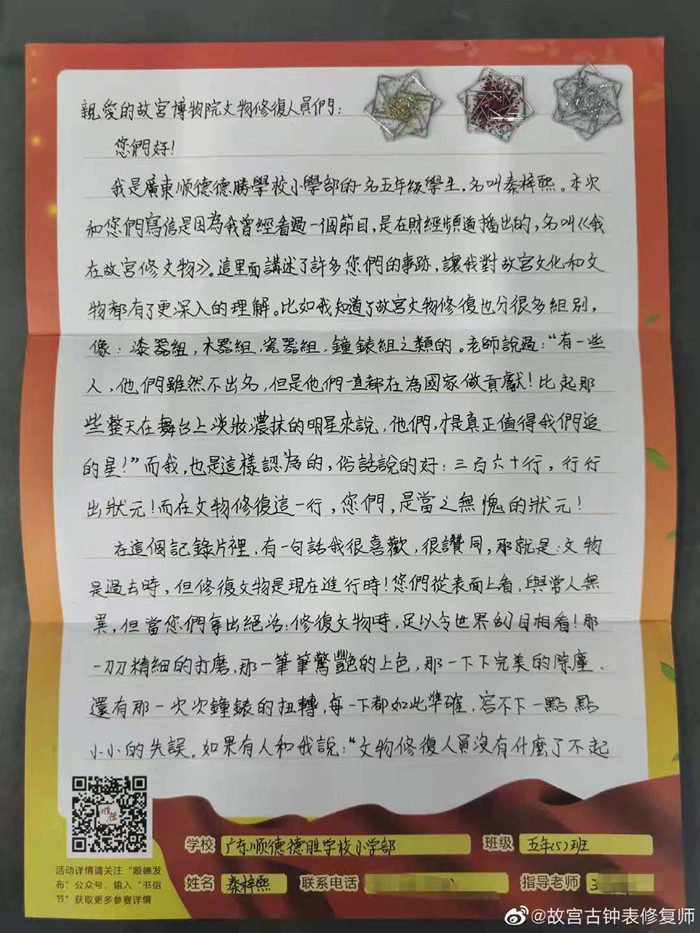 親愛的故宮博物院文物修復人員們：
您們好！
我是廣東順德德勝學校小學部的一名五年級學生，名叫秦梓熙。本次
和您們寫信是因為我曾經看過一個節目，是在財經頻道播出的，名叫《我
在故宮修文物》。這里面講述了許多您們的事跡，讓我對故宮文化和文
物都有了更深入的理解。比如我知道了故宮文物修復也分很多組別，
像：漆器組，木器組，瓷器組，鐘錶組之類的。老師說過：“有一些
人，他們雖然不出名，但是他們一直都在為國家做貢獻！比起那
些整天在舞台上淡妝濃抹的明星來說，他們，才是真正值得我們追
的星！”而我，也是這樣認為的，俗話說的好：三百六十行，行行
出狀元！而在文物修復這一行，您們，是當之無愧的狀元！
在這個記錄片裡，有一句話我很喜歡，很讚同，那就是：文物
是過去時，但修復文物是現在進行時！您們從表面上看，與常人無
異，但當您們拿出絕活：修復文物時，足以令世界刮目相看！那
一刀刀精細的打磨，那一筆筆驚艷的上色，那一下下完美的除塵、
還有那一次次鐘錶的扭轉，每一下都如此準確，容不下一點點
小小的失誤。如果有人和我說：“文物修復人員沒有什麼了不起
活动详情请关注“顺德发
布”公众号，输入“书信
节”获取更多参赛详情
学校 广东顺德德胜学校小学部 班级 五年(5)班
姓名 秦梓熙 联系电话 指导老师
@故宫古钟表修复师